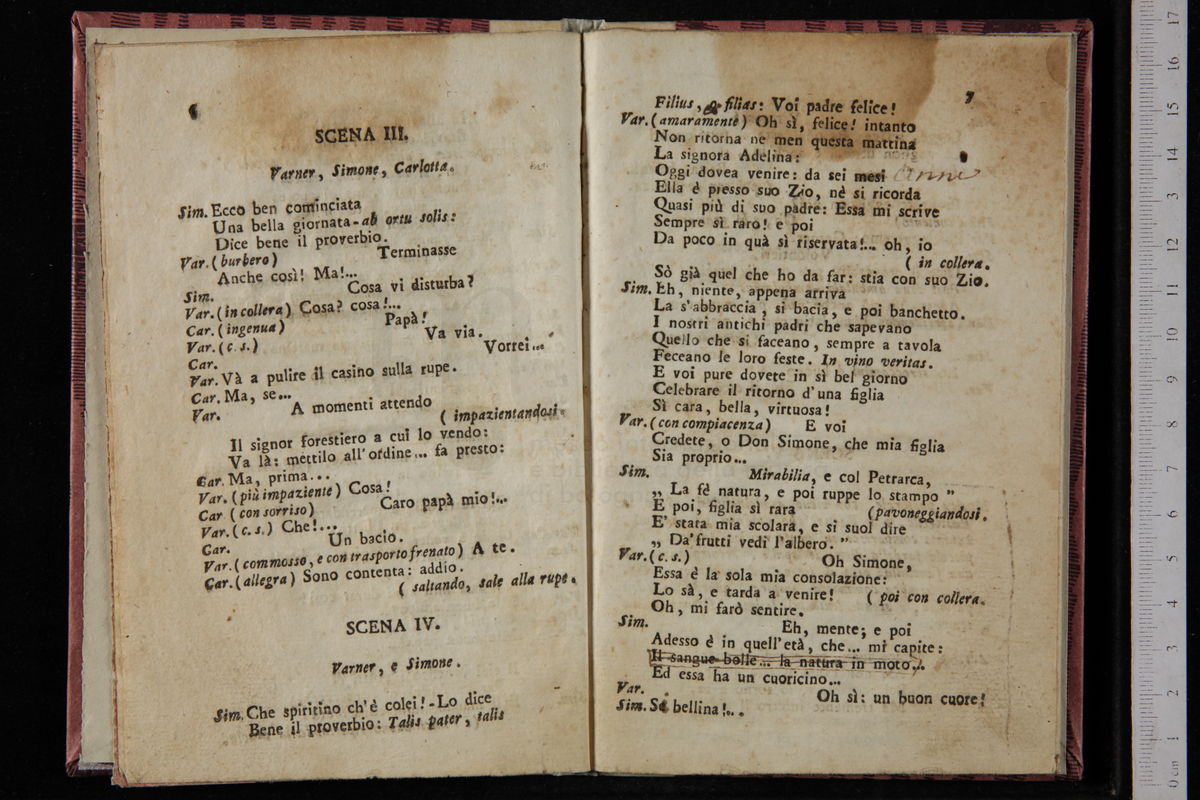 6
SCENA III.
Varner, Simone, Carlotta.
Sim. Ecco ben cominciata
Una bella giornata - ab ortu solis:
Dice bene il proverbio.
Var. (burbero) Terminasse
Anche così! Ma!...
Sim. Cosa vi disturba?
Var. (in collera) Cosa? cosa!...
Car. (ingenua) Papà!
Var. (c. s.) Va via.
Car. Vorrei...
Var. Và a pulire il casino sulla rupe.
Car. Ma, se...
Var. A momenti attendo
( impazientandosi.
Il signor forestiero a cui lo vendo:
Va là: mettilo all'ordine... fa presto:
Car. Ma, prima...
Var. (più impaziente) Cosa!
Car (con sorriso) Caro papà mio!...
Var. (c. s.) Che!...
Car. Un bacio.
Var. (commosso, e con trasporto frenato) A te.
Car. (allegra) Sono contenta: addio.
( saltando, sale alla rupe.
SCENA IV.
Varner, e Simone.
Sim. Che spiritino ch'è colei! - Lo dice
Bene il proverbio: Talis pater, talis
7
Filius, & filias: Voi padre felice!
Var. (amaramente) Oh sì, felice! intanto
Non ritorna ne men questa mattina
La signora Adelina:
Oggi dovea venire: da sei mesi anni
Ella è presso suo Zio, nè si ricorda
Quasi più di suo padre: Essa mi scrive
Sempre sì raro! e poi
Da poco in quà sì riservata!... oh, io
( in collera.
Sò già quel che ho da far: stia con suo Zio.
Sim. Eh, niente, appena arriva
La s'abbraccia, si bacia, e poi banchetto.
I nostri antichi padri che sapevano
Quello che si faceano, sempre a tavola
Feceano le loro feste. In vino veritas.
E voi pure dovete in sì bel giorno
Celebrare il ritorno d'una figlia
Sì cara, bella, virtuosa!
Var. (con compiacenza) E voi
Credete, o Don Simone, che mia figlia
Sia proprio...
Sim. Mirabilia, e col Petrarca,
„ La fè natura, e poi ruppe lo stampo ”
E poi, figlia sì rara (pavoneggiandosi.
E' stata mia scolara, e si suol dire
„ Da' frutti vedi l'albero. ”
Var. (c. s.) Oh Simone,
Essa è la sola mia consolazione:
Lo sà, e tarda a venire! ( poi con collera.
Oh, mi farò sentire.
Sim. Eh, mente; e poi
Adesso è in quell'età, che... mi capite:
Il sangue bolle... la natura in moto...
Ed essa ha un cuoricino...
Var. Oh sì: un buon cuore!
Sim. Sì bellina!...